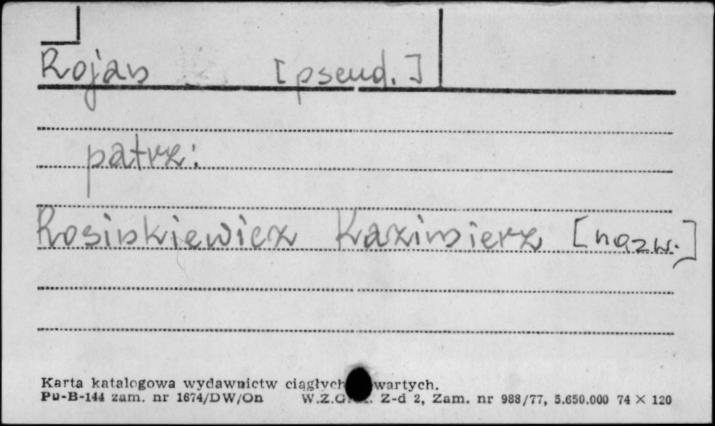 Rojan [pseud.]
patrz:
Rosinkiewicz Kazimierz [nazw.]
Karta katalogowa wydawnictw ciągłych wartych.
Pu-B-144 zam. nr 1674/DW/On W.Z.G. Z-d 2, Zam. nr 988/77, 5.650.000 74 × 120